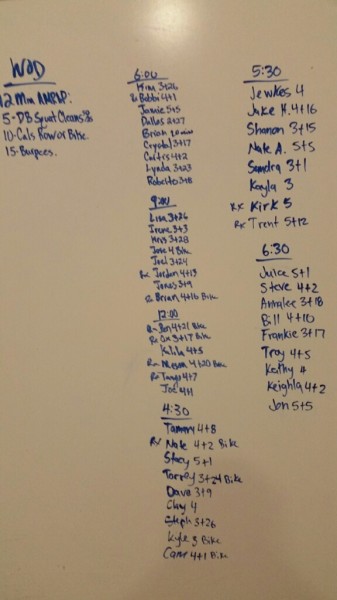 WOD
12 Min AMRAP:
5-DB Squat Cleans
10-Cals Row or Bike.
15-Burpees.
6:00
Kim 3+26
Rx Bobbi 4+1
Jamie 5+5
Dallas 2+27
Brian
Crystal 3+17
4+2
Lynda 3+23
Roberto 3+18
9:00
Lisa 3+26
Irene 3+3
Kris 3+28
Jose 4 Bike
Joel 3+24
Rx Jordan 4+13
Jonas 3+9
Rx Brian 4+16 Bike
12:00
Rx Jon 4+21 Bike
Rx Ox 3+17 Bike
4+5
Rx 4+20 Bike
Rx Tango 4+7
Joe 4+1
4:30
Tammy 4+8
Rx Nate 4+2 Bike
Stacy 5+1
Torrey 3+24 Bike
Dava 3+9
Chey 4
Steph 3+26
Kyle 3 Bike
Cami 4+1 Bike
5:30
Jewkes 4
Jake H. 4+16
Shanon 3+15
Nate A. 5+5
Sandra 3+1
Kayla 3
Rx Kirk 5
Rx Trent 5+12
6:30
Juice 5+1
Steve 4+2
Annalee 3+18
Bill 4+10
Frankie 3+17
Troy 4+5
Kathy 4
Keighla 4+2
Jon 5+5